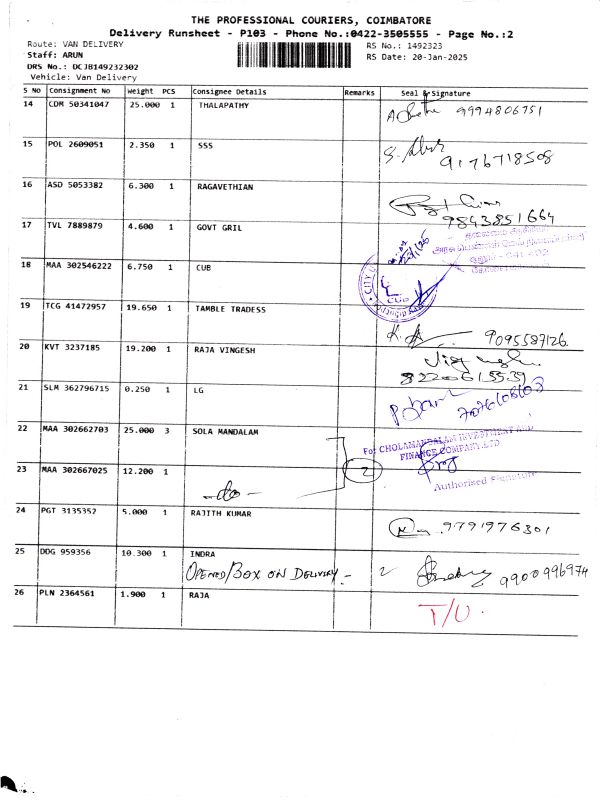 THE PROFESSIONAL COURIERS, COIMBATORE
Delivery Runsheet - P103 - Phone No.:0422-3505555 - Page No.:2
Route: VAN DELIVERY
RS No.: 1492323
Staff: ARUN
RS Date: 20-Jan-2025
DRS No.: DCJB149232302
Vehicle: Van Delivery
S No Consignment No Weight PCS Consignee Details Remarks Seal & Signature
14 CDM 50341047 25.000 1 THALAPATHY 9994806751
15 POL 2609051 2.350 1 SSS 9176718508
16 ASD 5053382 6.300 1 RAGAVETHIAN 9843851664
17 TVL 7889879 4.600 1 GOVT GRIL
18 MAA 302546222 6.750 1 CUB CUB
19 TCG 41472957 19.650 1 TAMBLE TRADESS 9095587126.
20 KVT 3237185 19.200 1 RAJA VINGESH 8220615539
21 SLM 362796715 0.250 1 LG 7076108103
22 MAA 302662703 25.000 3 SOLA MANDALAM
For CHOLAMANDALAM INVESTMENT AND
FINANCE COMPANY LTD
23 MAA 302667025 12.200 1 2
-do-
Authorised Signatory
24 PGT 3135352 5.000 1 RAJITH KUMAR 9791976301
25 DDG 959356 10.300 1 INDRA
OPENED/BOX ON DELIVERY. - 9900996974
26 PLN 2364561 1.900 1 RAJA T/U.